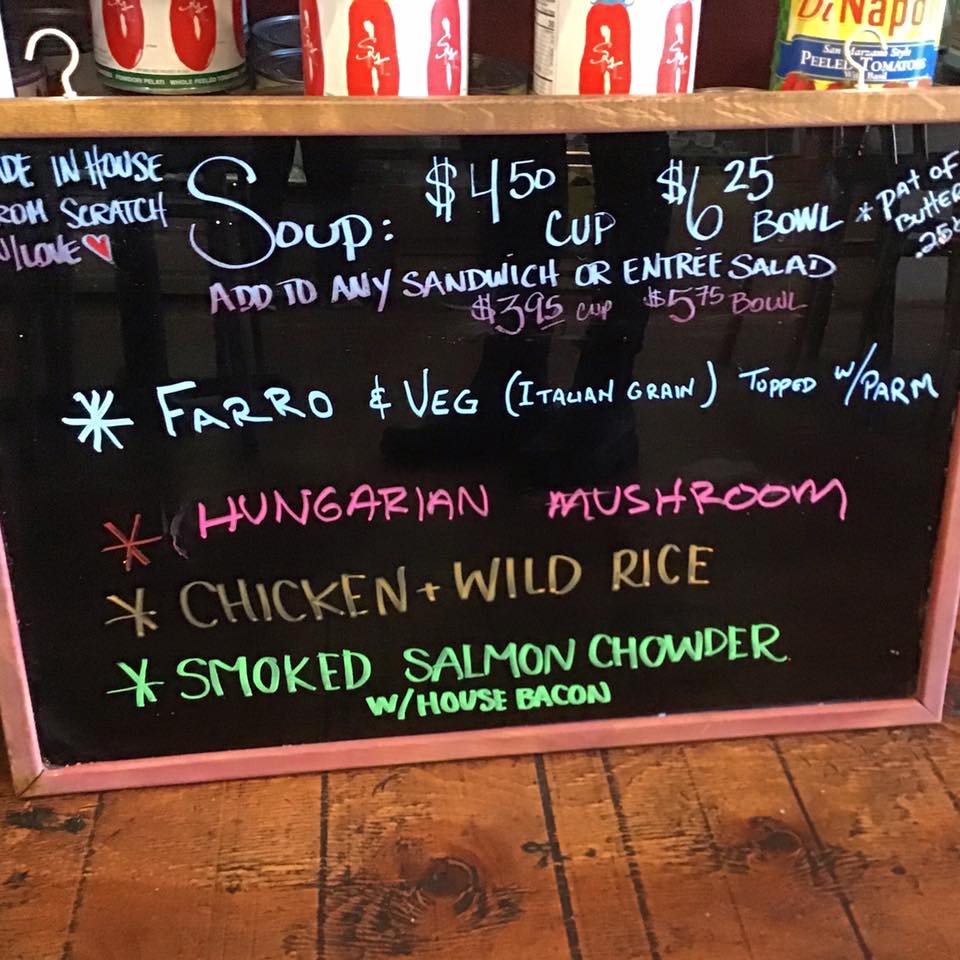 POMODORI PELATI WHOLE PEELED TOMATOES
DiNapo
San Marzano Style
PEELED TOMATOES
With Basil
DE IN HOUSE
ROM SCRATCH
W/LOVE
Soup: $4.50 CUP $6.25 BOWL
* PAT OF
BUTTER
.25¢
ADD TO ANY SANDWICH OR ENTRÉE SALAD
$3.95 CUP $5.75 BOWL
* FARRO & VEG (ITALIAN GRAIN) TOPPED W/PARM
* HUNGARIAN MUSHROOM
* CHICKEN + WILD RICE
* SMOKED SALMON CHOWDER
W/HOUSE BACON